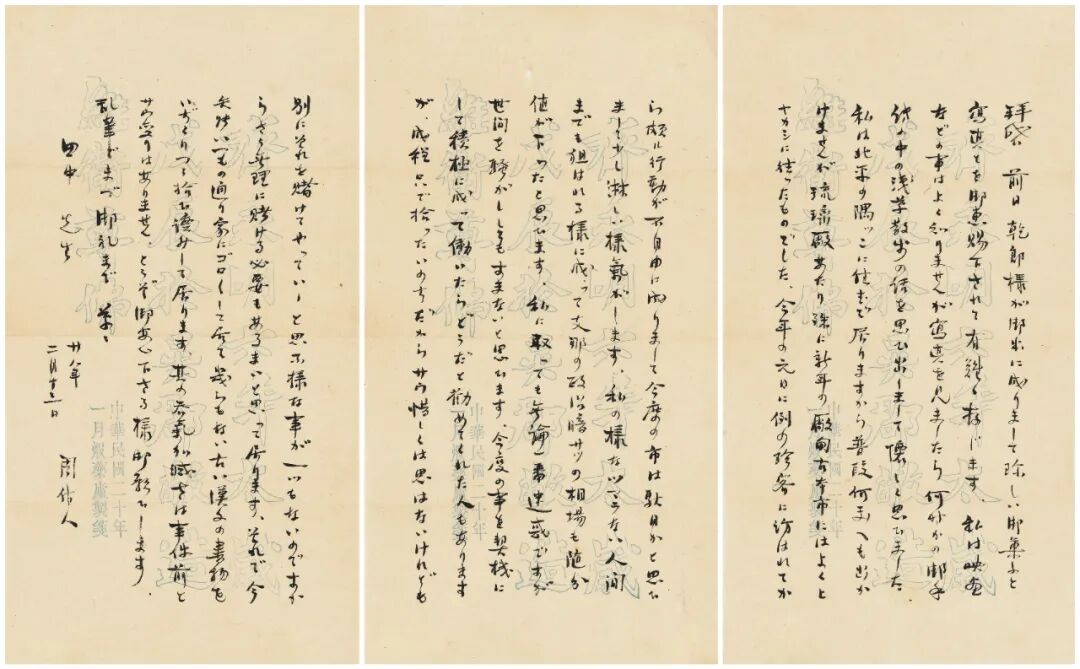 拝啓 前日乾郎様が御出に成りまして珍しい御菓子と
寫真とを御惠賜下されて有難く存じます、私は映画
などの事はよく知りませんが寫真を見ましたら何かの御手
紙の中の浅草散歩の話を思ひ出しまして懐しく思ひました
私は北平の隅ッこに住んで居りますから普段何處へも出か
けませんが琉璃廠あたり殊に新年の廠甸古本市にはよくよ
ナカシに往ったものでした、今年の元日に例の珍客に訪はれてか
ら頗ル行動が不自由に成りまして今度の市は駄目かと思ひ
まして少し淋しい様氣がします、私の様なツマラない人間
までも狙はれる様に成って支那の政治暗サツの相場も随分
値が下ったと思ひます、私に取っても無論一番迷惑ですが
世間を騒がししてもすまないと思ひます、今度の事を契機に
して積極に成って働いたらどうだと勧めてくれた人もあります
が、成程只で拾ったいのちだからサウ惜しくは思はないけれども
中華民國二十年
別にそれを賭けてやっていゝと思ふ様な事が一つもないのですか
らさう無理に賭ける必要もあるまいと思って居ります、それで今
矢張いつもの通り家にゴロ〱して居て幾らもない古い漢文の書物を
いぢくりつゝ拾ひ讀みして居ります、其の呑氣加減さは事件前と
サウ変りはありません、どうぞ御安心下さる様御願ひします、
乱筆でまづ御礼まで 草々
田中先生
廿八年
二月十三日 周作人
中華民國二十年
一月煆藥廬製箋